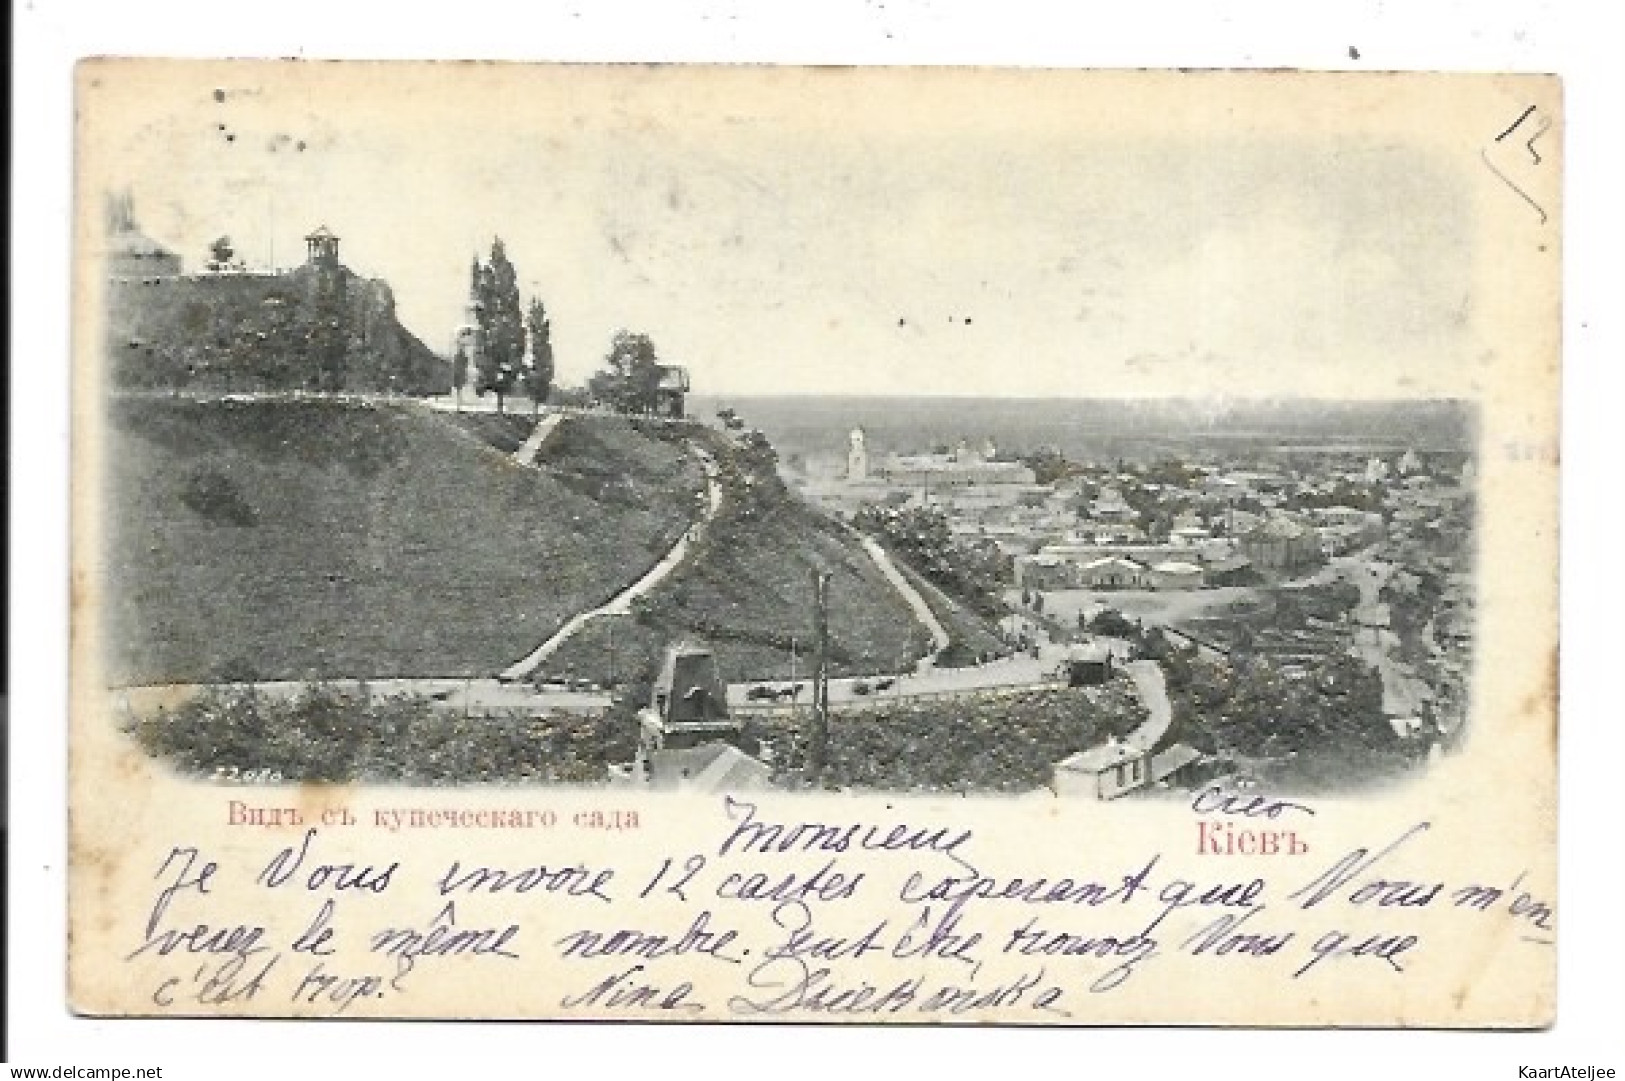 12
Видъ съ купеческаго сада
Кіевъ
Monsieur
Je Vous envoie 12 cartes experant que Vous m'en-
verez le même nombre. Peut être trouvez Vous que
c'est trop?
Nina
delcampe.net
KaartAteljee